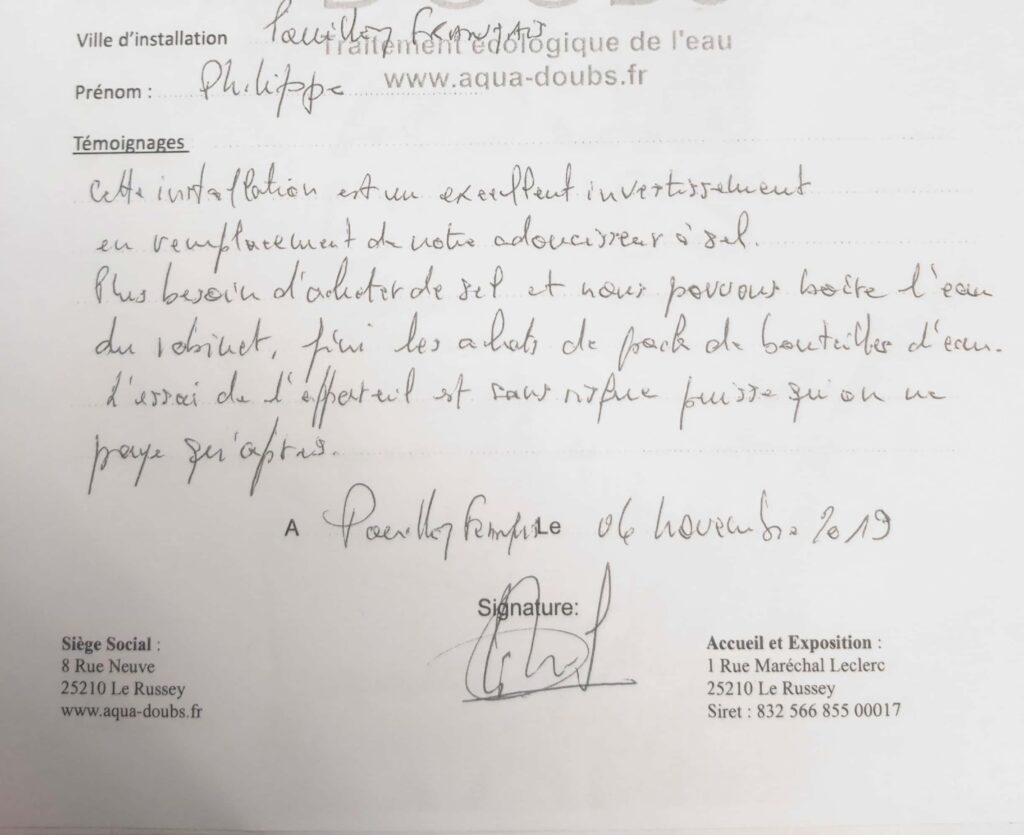 DOUBS
Traitement écologique de l'eau
www.aqua-doubs.fr
Ville d'installation Pouilley FRANÇAIS
Prénom : Philippe
Témoignages
Cette installation est un excellent investissement
en remplacement de notre adoucisseur à sel.
Plus besoin d'acheter de sel et nous pouvons boire l'eau
du robinet, fini les achats de pack de bouteilles d'eau.
L'essai de l'appareil est sans risque puisse qu'on ne
paye qu'après.
A Pouilley Français Le 06 novembre 2019
Signature:
Siège Social :
8 Rue Neuve
25210 Le Russey
www.aqua-doubs.fr
Accueil et Exposition :
1 Rue Maréchal Leclerc
25210 Le Russey
Siret : 832 566 855 00017